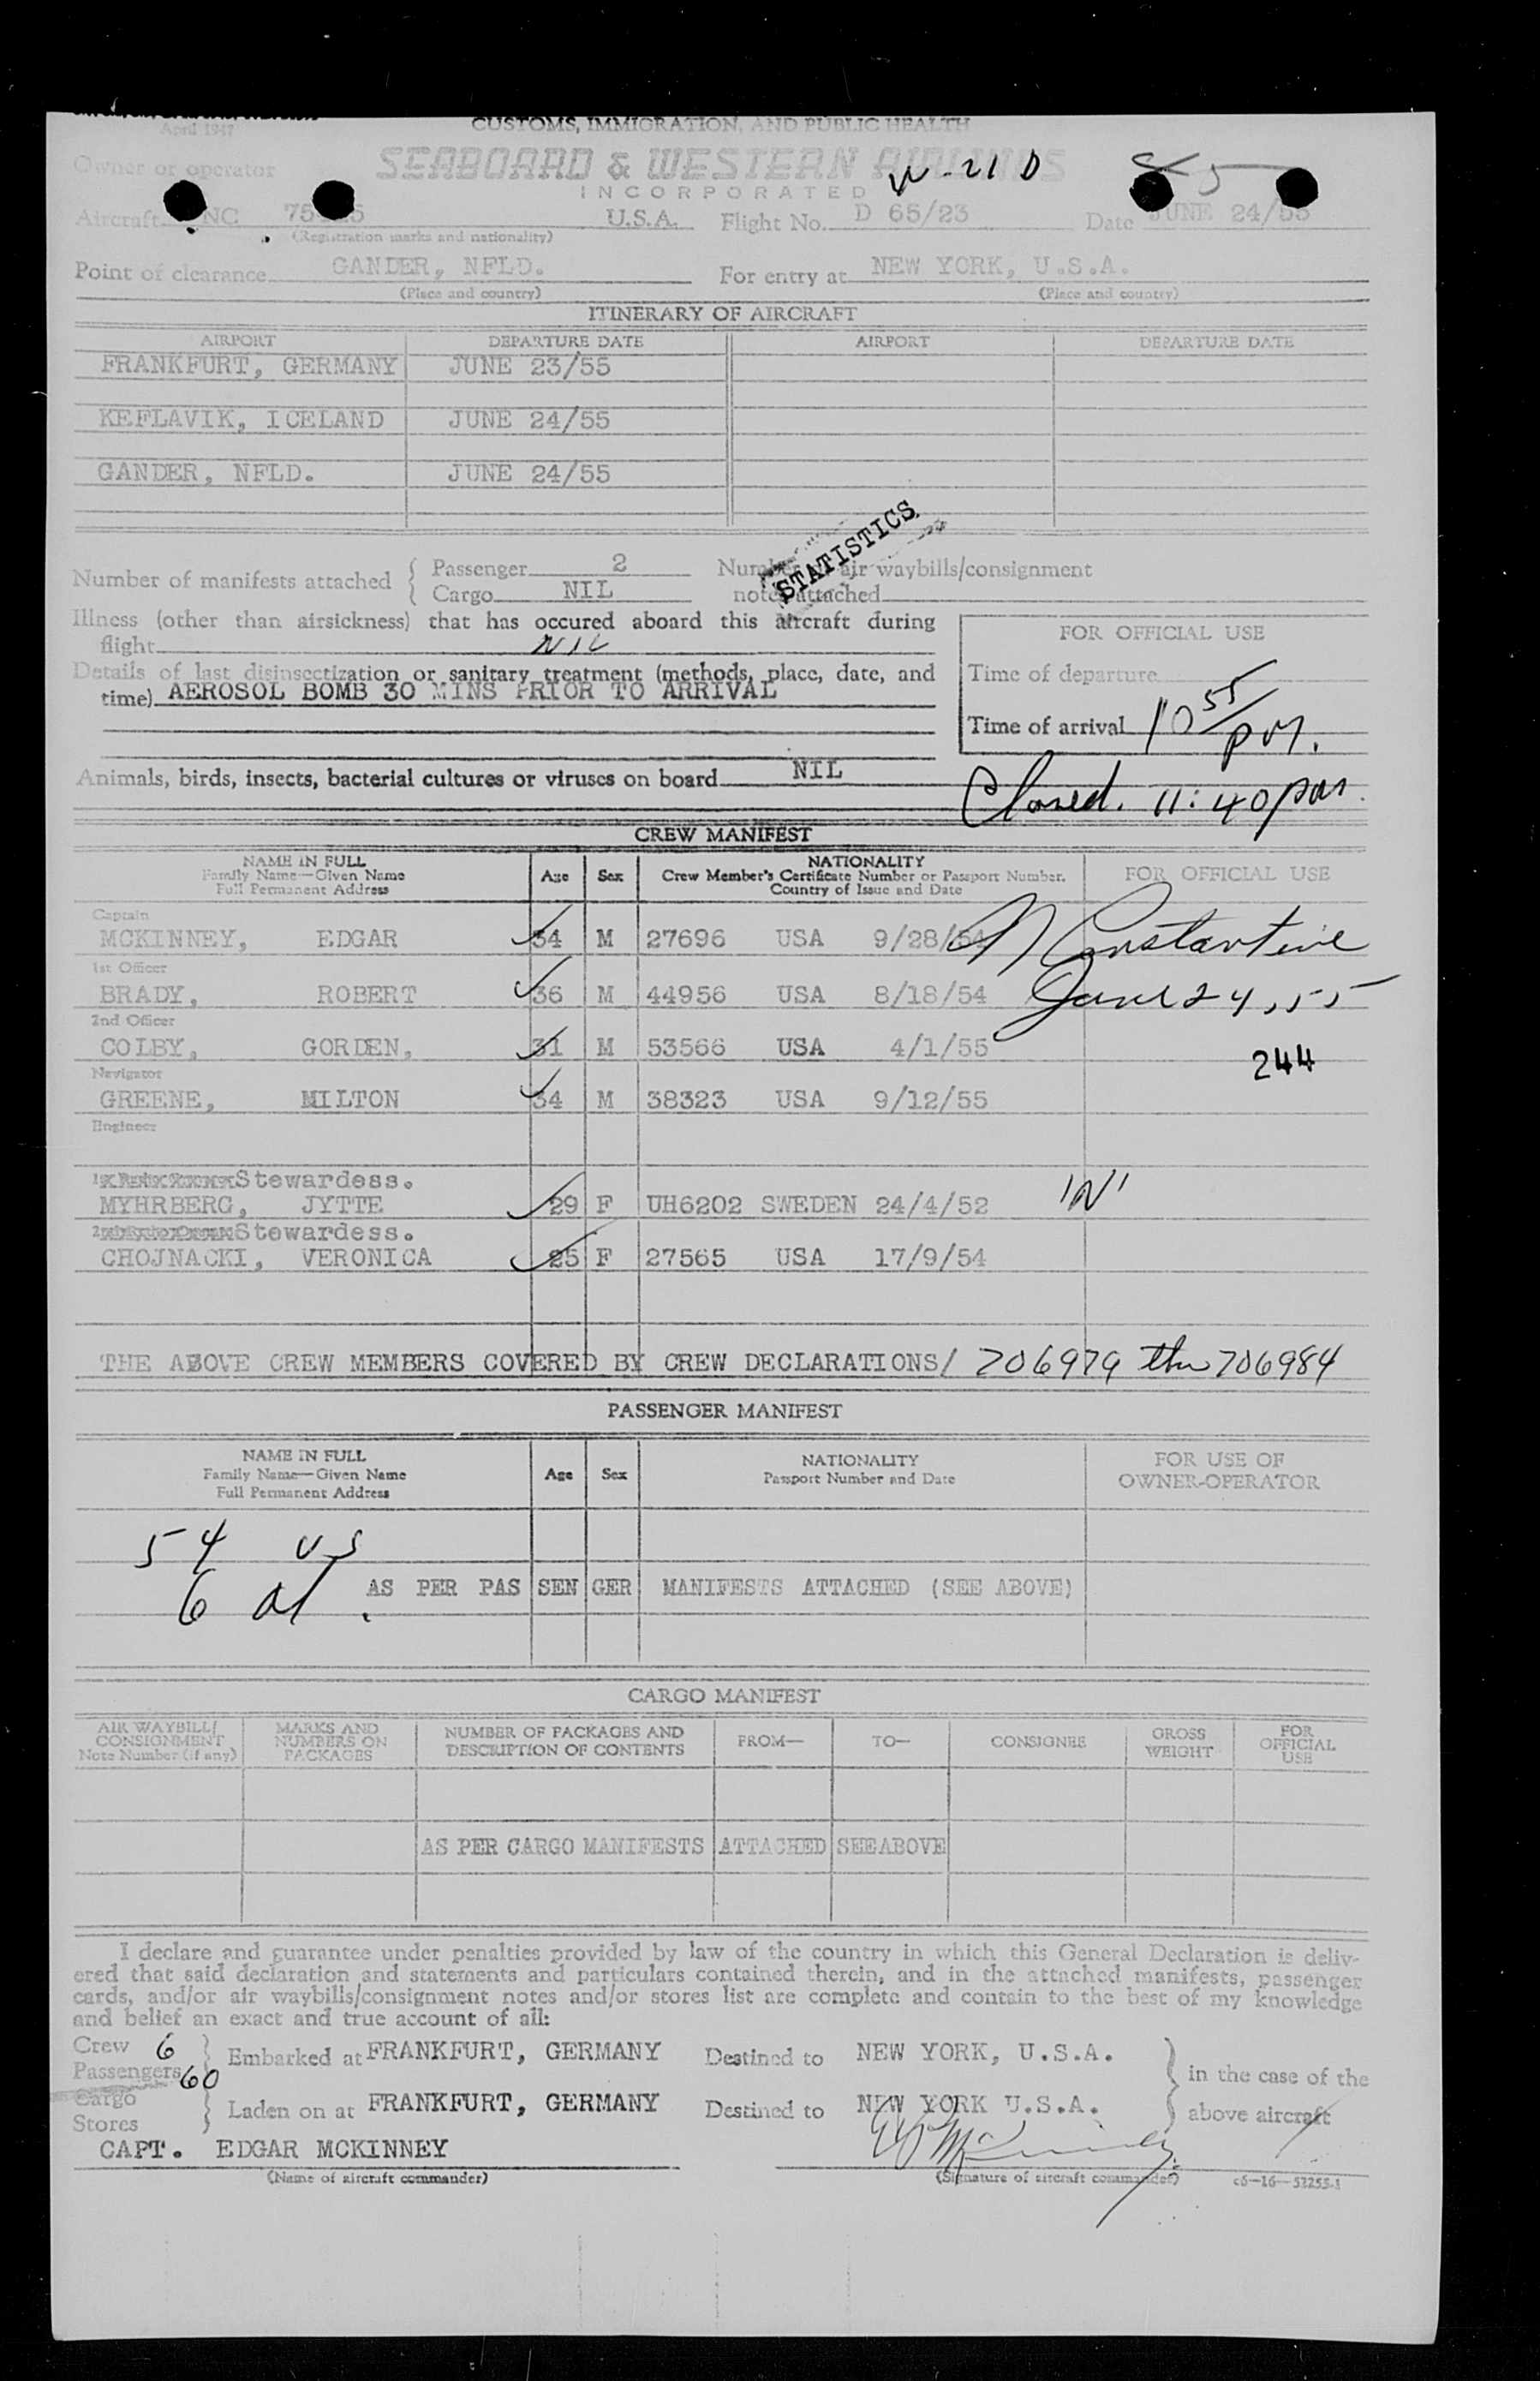 April 1947
CUSTOMS, IMMIGRATION, AND PUBLIC HEALTH
Owner or operator SEABOARD & WESTERN AIRLINES
INCORPORATED
W-21 D
Aircraft NC U.S.A. Flight No. D 65/23 Date JUNE 24/55
(Registration marks and nationality)
Point of clearance GANDER, NFLD. For entry at NEW YORK, U.S.A.
(Place and country) (Place and country)
ITINERARY OF AIRCRAFT
AIRPORT DEPARTURE DATE AIRPORT DEPARTURE DATE
FRANKFURT, GERMANY JUNE 23/55
KEFLAVIK, ICELAND JUNE 24/55
GANDER, NFLD. JUNE 24/55
STATISTICS
Number of manifests attached { Passenger 2 Number of air waybills/consignment
Cargo NIL notes attached
Illness (other than airsickness) that has occured aboard this aircraft during
flight NIL
FOR OFFICIAL USE
Details of last disinsectization or sanitary treatment (methods, place, date, and
time) AEROSOL BOMB 30 MINS PRIOR TO ARRIVAL
Time of departure
Time of arrival 10 55 pm.
Animals, birds, insects, bacterial cultures or viruses on board NIL
Closed. 11:40 pm.
CREW MANIFEST
NAME IN FULL
Family Name—Given Name
Full Permanent Address
Age Sex
NATIONALITY
Crew Member's Certificate Number or Passport Number.
Country of Issue and Date
FOR OFFICIAL USE
Captain
MCKINNEY, EDGAR 34 M 27696 USA 9/28/54 N Constantine
1st Officer
BRADY, ROBERT 36 M 44956 USA 8/18/54 June 24, 55
2nd Officer
COLBY, GORDEN, 31 M 53566 USA 4/1/55 244
Navigator
GREENE, MILTON 34 M 38323 USA 9/12/55
Engineer
Stewardess.
MYHRBERG, JYTTE 29 F UH6202 SWEDEN 24/4/52 'N'
Stewardess.
CHOJNACKI, VERONICA 25 F 27565 USA 17/9/54
THE ABOVE CREW MEMBERS COVERED BY CREW DECLARATIONS/ 706979 thru 706984
PASSENGER MANIFEST
NAME IN FULL
Family Name—Given Name
Full Permanent Address
Age Sex
NATIONALITY
Passport Number and Date
FOR USE OF
OWNER-OPERATOR
54 US
6 al.
AS PER PASSENGER MANIFESTS ATTACHED (SEE ABOVE)
CARGO MANIFEST
AIR WAYBILL/
CONSIGNMENT
Note Number (if any)
MARKS AND
NUMBERS ON
PACKAGES
NUMBER OF PACKAGES AND
DESCRIPTION OF CONTENTS
FROM— TO— CONSIGNEE
GROSS
WEIGHT
FOR
OFFICIAL
USE
AS PER CARGO MANIFESTS ATTACHED SEE ABOVE
I declare and guarantee under penalties provided by law of the country in which this General Declaration is deliv-
ered that said declaration and statements and particulars contained therein, and in the attached manifests, passenger
cards, and/or air waybills/consignment notes and/or stores list are complete and contain to the best of my knowledge
and belief an exact and true account of all:
Crew 6
Passengers 60
Embarked at FRANKFURT, GERMANY Destined to NEW YORK, U.S.A.
in the case of the
Cargo
Stores
Laden on at FRANKFURT, GERMANY Destined to NEW YORK U.S.A.
above aircraft
CAPT. EDGAR MCKINNEY
(Name of aircraft commander) (Signature of aircraft commander) c6—16—52255-1